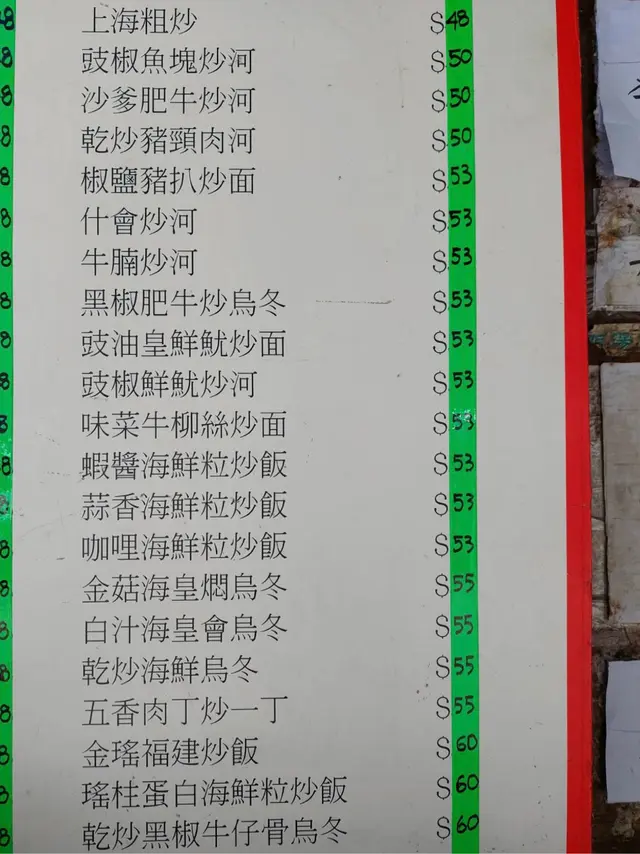 上海粗炒 $48
豉椒魚塊炒河 $50
沙爹肥牛炒河 $50
乾炒豬頸肉河 $50
椒鹽豬扒炒面 $53
什會炒河 $53
牛腩炒河 $53
黑椒肥牛炒烏冬 $53
豉油皇鮮魷炒面 $53
豉椒鮮魷炒河 $53
味菜牛柳絲炒面 $53
蝦醬海鮮粒炒飯 $53
蒜香海鮮粒炒飯 $53
咖哩海鮮粒炒飯 $53
金菇海皇燜烏冬 $55
白汁海皇會烏冬 $55
乾炒海鮮烏冬 $55
五香肉丁炒一丁 $55
金瑤福建炒飯 $60
瑤桂蛋白海鮮粒炒飯 $60
乾炒黑椒牛仔骨烏冬 $60